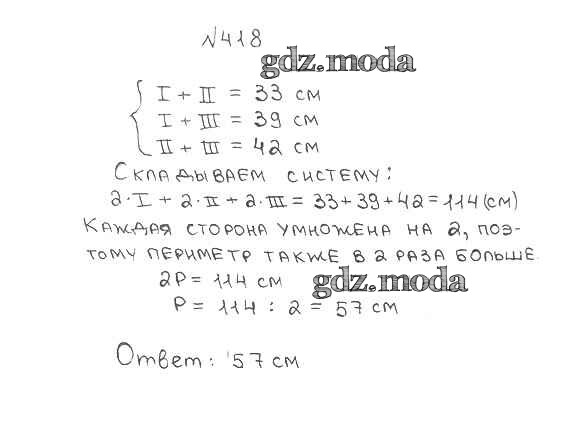 №418
gdz.moda
I + II = 33 см
I + III = 39 см
II + III = 42 см
Складываем систему:
2·I + 2·II + 2·III = 33+39+42=114(см)
Каждая сторона умножена на 2, поэ-
тому периметр также в 2 раза больше.
2P= 114 см
gdz.moda
P = 114 : 2 = 57 см
Ответ: 57 см